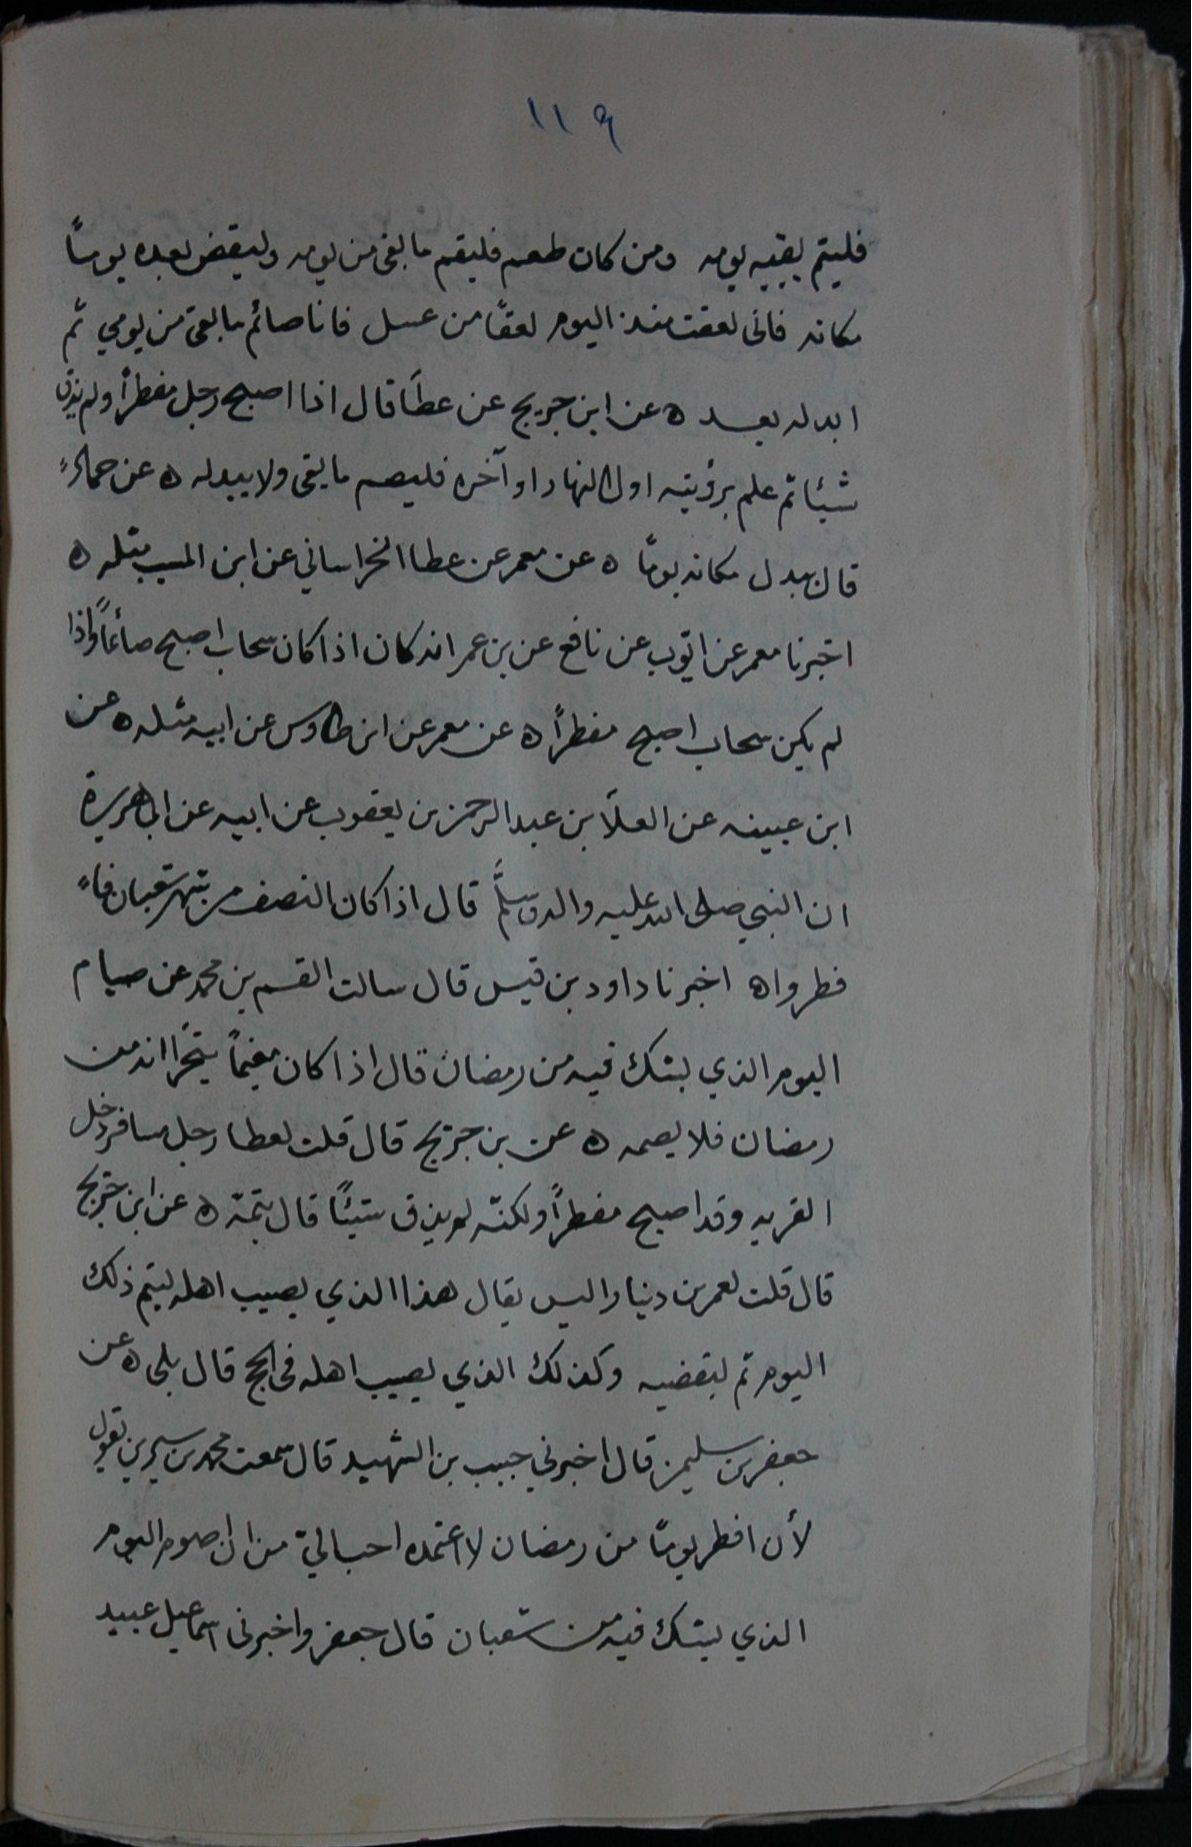 ١١٩
فليتم بقيه يومه ومن كان طعم فليقم ما بقى من يومه وليقض بعده يومًا
مكانه فانى لعقت منذ اليوم لعقًا من عسل فانا صائم ما بقى من يومي ثم
ابدله بعد ه عن ابن جريج عن عطآ قال اذا اصبح رجل مفطرًا ولم يذق
شيئا ثم علم برؤيته اول النهار او آخره فليصم ما بقى ولا يبدله ه عن حماد
قال يبدل مكانه يومًا ه عن معمر عن عطا الخراساني عن ابن المسيب مثله ه
اخبرنا معمر عن ايوب عن نافع عن بن عمر انه كان اذا كان سحاب اصبح صائمًا واذا
لم يكن سحاب اصبح مفطرًا ه عن معمر عن ابن طاوس عن ابيه مثله ه عن
ابن عيينه عن العلآ بن عبد الرحمن بن يعقوب عن ابيه عن ابي هريرة
ان النبي صلى الله عليه واله وسلَّم قال اذا كان النصف من شهر شعبان فا
فطروا ه اخبرنا داود بن قيس قال سالت القسم بن محمد عن صيام
اليوم الذي يشك فيه من رمضان قال اذا كان مغيمًا يتحرا انه من
رمضان فلا يصمه ه عن بن جريج قال قلت لعطا رجل مسافر دخل
القريه وقد اصبح مفطرًا ولكنّه لم يذق شيئًا قال يتمّه ه عن ابن جريج
قال قلت لعمر بن دينار اليس يقال هذا الذي يصيب اهله ليتم ذلك
اليوم ثم ليقضيه وكذلك الذي يصيب اهله فى الحج قال بلى ه عن
جعفر بن سليمن قال اخبرني حبيب بن الشهيد قال سمعت محمد بن سيرين يقول
لأن افطر يومًا من رمضان لا اعتمده احب اليّ من ان اصوم اليوم
الذي يشك فيه من شعبان قال جعفر واخبرنى اسماعيل عبيد